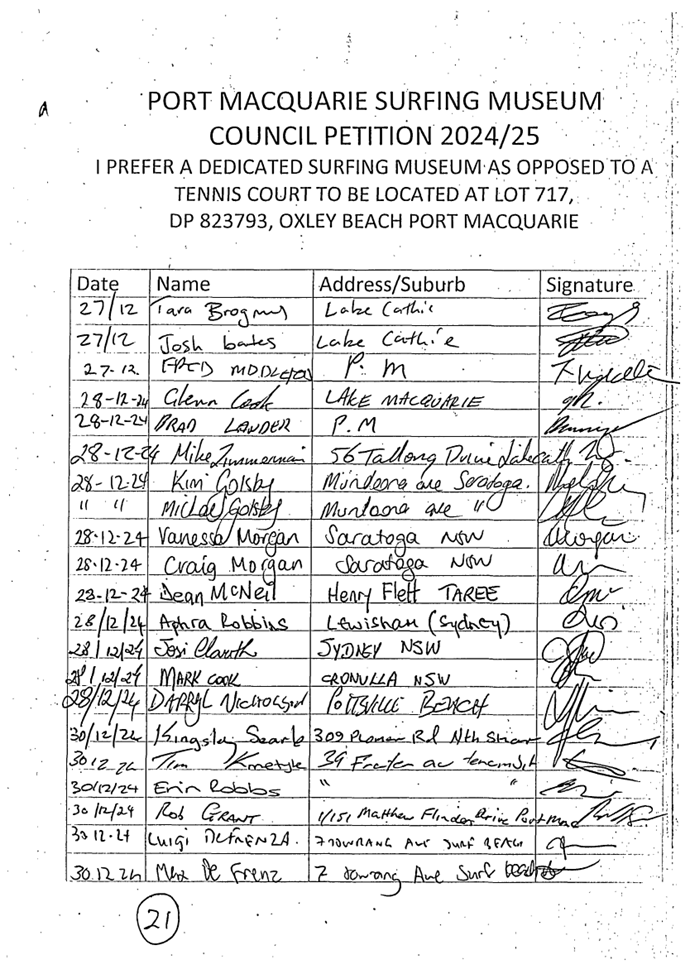 a
PORT MACQUARIE SURFING MUSEUM
COUNCIL PETITION 2024/25
I PREFER A DEDICATED SURFING MUSEUM AS OPPOSED TO A
TENNIS COURT TO BE LOCATED AT LOT 717,
DP 823793, OXLEY BEACH PORT MACQUARIE
Date Name Address/Suburb Signature
27/12 Tara Lake Cathie
27/12 Josh bates Lake Cathie
27-12 FRED P.M
28-12-24 Glenn Cook LAKE MACQUARIE
28-12-24 BRAD LANDER P.M
28-12-24 Mike Zimmerman 56 Tallong Drive Lake Cath
28-12-24 Kim Golsby Mundoora ave Saratoga.
" " Golsby ave "
28-12-24 Vanessa Morgan Saratoga NSW Morgan
28-12-24 Craig Morgan Saratoga NSW
28-12-24 Dean McNeil Henry Flett TAREE
28/12/24 Aphra Robbins Lewisham (Sydney)
28/12/24 SYDNEY NSW
28/12/24 MARK COOK CRONULLA NSW
28/12/24 DARRYL POTTSVILLE BEACH
30/12/24 Kingsley 309 Rd Nth
30 12 24 Tim 39 av
30/12/24 Erin Robbs " "
30/12/24 Rob GRANT 1/151 Matthew Flinders Drive Port Mac
30 12-24 LUIGI DEFRENZA. 7 JOWRANG AVE SURF BEACH
30.12 24 Max De Frenz 7 Jowrang Ave Surf
21